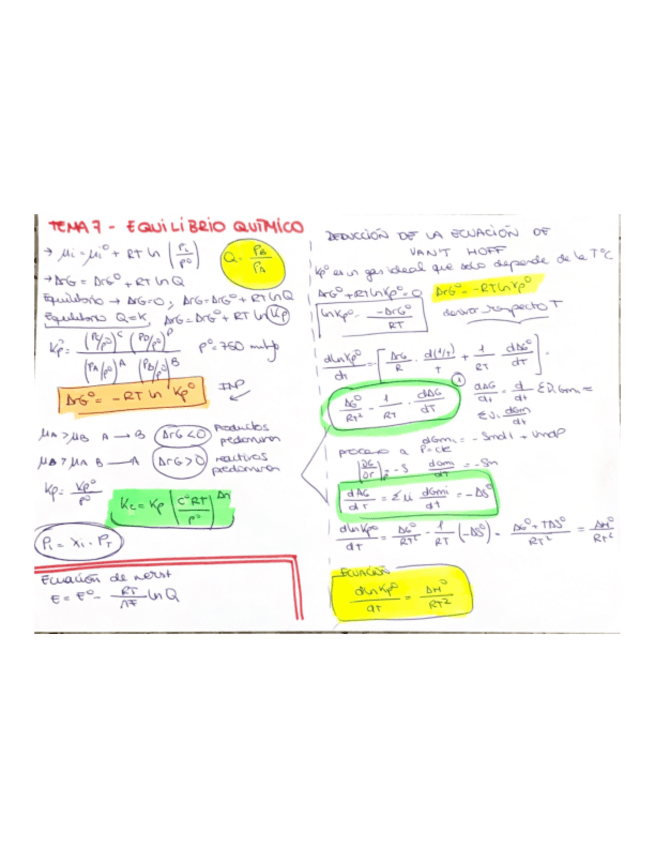 TEMA 7 - EQUILIBRIO QUÍMICO
→ μi = μi° + RT ln (Pi/P°)
Q = PB/PA
→ ΔrG = ΔrG° + RT ln Q
Equilibrio → ΔrG=0; ΔrG=ΔrG°+RT ln Q
Equilibrio Q=K, ΔrG=ΔrG°+RT ln Kp
Kp° = (Pc/P°)^C (PD/P°)^D / (PA/P°)^A (PB/P°)^B
P° = 750 mmHg
ΔrG° = -RT ln Kp°
IMP
μA > μB A → B ΔrG<0 Productos predominan
μB > μA B → A ΔrG>0 reactivos predominan
Kp = Kp°/P°
Kc = Kp (C°RT/P°)^Δn
Pi = Xi · PT
Ecuación de nerst
E = E° - RT/nF ln Q
DEDUCCIÓN DE LA ECUACIÓN DE
VAN'T HOFF
Kp° es un gas ideal que solo depende de la T°C
ΔrG°+RT ln Kp°=0 ΔrG° = -RT ln Kp°
ln Kp° = -ΔrG°/RT
derivar respecto T
dln Kp°/dt = [ΔrG/R · d(1/T)/T + 1/RT dΔG°/dT] =
ΔG°/RT² - 1/RT · dΔG/dT
① dΔG/dt = d/dt ΣVi Gmi =
ΣVi dGm/dt
dGmi = -Smdt + VmdP
proceso a P=cte
(dG/dT)p = -S dGmi/dT = -Sm
dΔG/dT = Σμ dGmi/dt = -ΔS°
dln Kp°/dT = ΔG°/RT² - 1/RT (-ΔS°) = ΔG°+TΔS°/RT² = ΔH°/RT²
ECUACIÓN
dln Kp°/dT = ΔH°/RT²